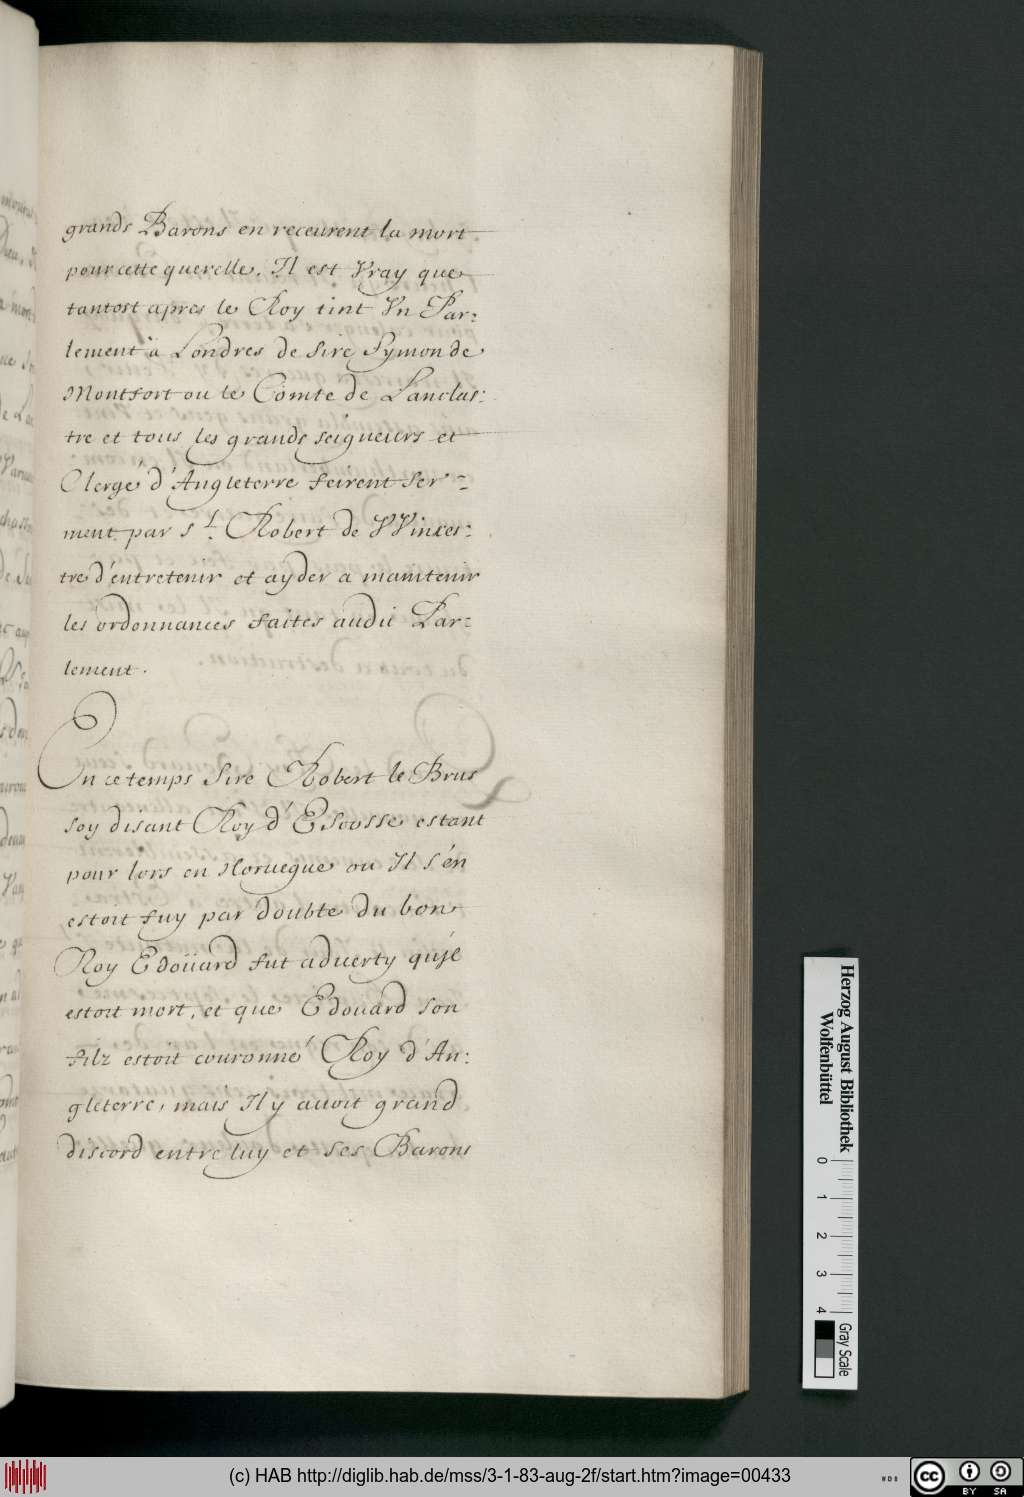 grands Barons en receurent la mort
pour cette querelle. Il est Vray que
tantost apres le Roy tint Vn Par:
lement a Londres de sire Symon de
Montfort ou le Comte de Lanclas:
tre et tous les grands seigneurs et
Clergé d'Angleterre feirent ser:
ment par St. Robert de VVinxes:
tre d'entretenir et ayder a maintenir
les ordonnances faites audit Par:
lement.
En ce temps Sire Robert le Brus
soy disant Roy d'Escosse estant
pour lors en Noruegue ou Il s'en
estoit fuy par doubte du bon
Roy Edoüard fut aduerty qu'je
estoit mort, et que Edouard son
filz estoit couronné Roy d'An:
gleterre, mais Il y auoit grand
discord entre luy et ses Barons
Herzog August Bibliothek
Wolfenbüttel
0 1 2 3 4
Gray Scale
(c) HAB http://diglib.hab.de/mss/3-1-83-aug-2f/start.htm?image=00433
WDB
cc BY SA